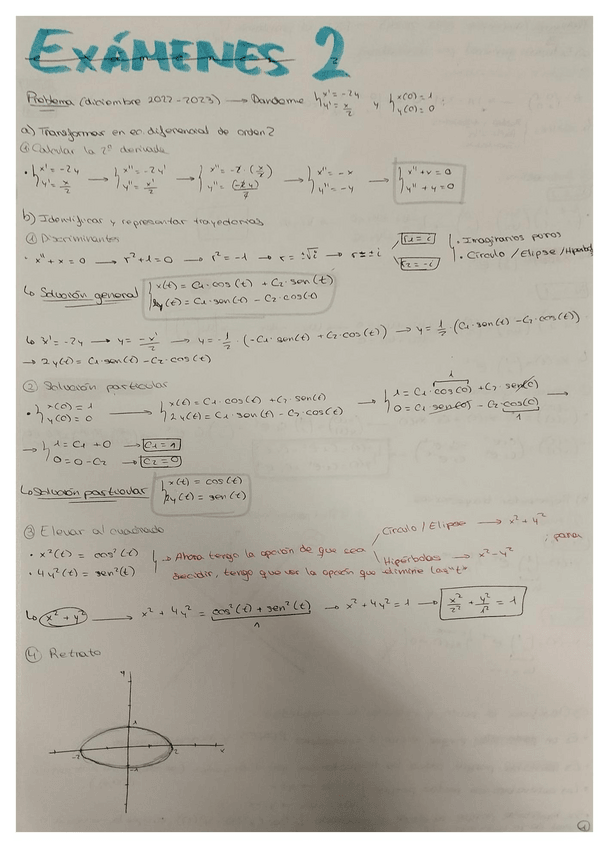 EXÁMENES 2
Problema (diciembre 2022-2023) → Dandome { x' = -2y y' = x/2 y { x(0) = 1 y(0) = 0 :
a) Transformar en ec diferencial de orden 2
① Calcular la 2ª derivada
• { x' = -2y y' = x/2 → { x'' = -2y' y'' = x'/2 → { x'' = -2·(x/2) y'' = (-2y)/2 → { x'' = -x y'' = -y → { x'' + x = 0 y'' + y = 0
b) Identificar y representar trayectorias
① Discriminantes
• x'' + x = 0 → r² + 1 = 0 → r² = -1 → r = ±√i → r = ± i r1 = i r2 = -i { • Imaginarios puros • Círculo / Elipse / Hipérbola
↳ Solución general { x(t) = C1·cos(t) + C2·sen(t) 2y(t) = C1·sen(t) - C2·cos(t)
↳ x' = -2y → y = -x'/2 → y = -1/2·(-C1·sen(t) + C2·cos(t)) → y = 1/2·(C1·sen(t) - C2·cos(t))
→ 2y(t) = C1·sen(t) - C2·cos(t)
② Solución particular
• { x(0) = 1 y(0) = 0 → { x(t) = C1·cos(t) + C2·sen(t) 2y(t) = C1·sen(t) - C2·cos(t) → { 1 = C1·cos(0) + C2·sen(0) 0 = C1·sen(0) - C2·cos(0) 1 1 →
→ { 1 = C1 + 0 → C1 = 1 0 = 0 - C2 → C2 = 0
↳ Solución particular { x(t) = cos(t) 2y(t) = sen(t)
③ Elevar al cuadrado
• x²(t) = cos²(t)
• 4y²(t) = sen²(t)
→ Ahora tengo la opción de que sea Círculo / Elipse → x² + y² Hipérbolas → x² - y² ; para
decidir, tengo que ver la opción que elimine las "t"
↳ x² + y² → x² + 4y² = cos²(t) + sen²(t) 1 → x² + 4y² = 1 → x²/2² + y²/1² = 1
④ Retrato
y
1
-2 2 x
-1
1